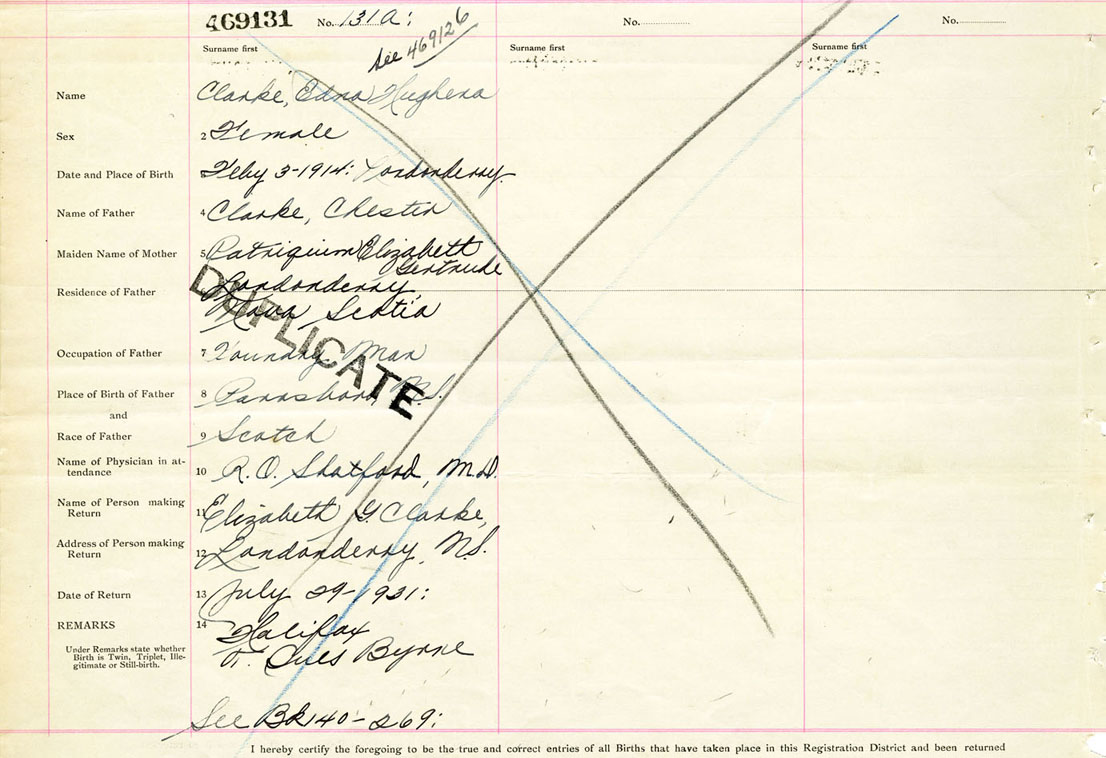 469131 No. 131a: No. No.
See 469126
Surname first Surname first Surname first
Name Clarke, Edna Hughena
Sex 2 Female
Date and Place of Birth 3 Feby 3-1914: Londonderry
Name of Father 4 Clarke, Chester
Maiden Name of Mother 5 Patriquin Elizabeth
Gertrude
Residence of Father Londonderry,
Nova Scotia
DUPLICATE
Occupation of Father 7 Foundry Man
Place of Birth of Father 8 Parrsboro, N.S.
and
Race of Father 9 Scotch
Name of Physician in at-
tendance 10 R. O. Shatford, M.D.
Name of Person making
Return 11 Elizabeth G Clarke,
Address of Person making
Return 12 Londonderry, N.S.
Date of Return 13 July 29-1921:
REMARKS 14 Halifax
Under Remarks state whether
Birth is Twin, Triplet, Ille-
gitimate or Still-birth.
Byrne
See Bk 140-269:
I hereby certify the foregoing to be the true and correct entries of all Births that have taken place in this Registration District and been returned